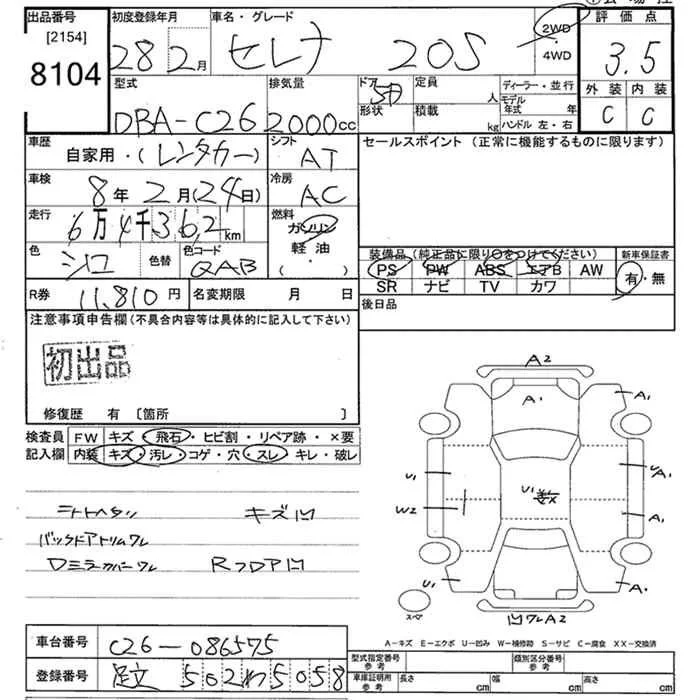 出品番号 [2154] 8104
初度登録年月 28 2月
車名・グレード セレナ 20S
2WD
4WD
評価点 3.5
外装 内装
C C
型式 DBA-C26
排気量 2000cc
ドア 5D
形状
定員 人
積載 kg
ディーラー・並行
モデル年式 年
ハンドル 左・右
車歴 自家用・(レンタカー)
シフト AT
セールスポイント (正常に機能するものに限ります)
車検 8年 2月(24日)
冷房 AC
走行 6万4千362km
燃料 ガソリン
軽油
(・)
色 シロ 色替
色コード QAB
装備品 (純正品に限り〇をつけてください)
新車保証書
PS PW ABS エアB AW
SR ナビ TV カワ
有・無
R券 11,810円
名変期限 月 日
後日品
注意事項申告欄 (不具合内容等は具体的に記入して下さい)
初出品
修復歴 有 〔箇所 〕
検査員 FW キズ・飛石・ヒビ割・リペア跡・×要
記入欄 内装 キズ・汚レ・コゲ・穴・スレ・キレ・破レ
シートヘタリ キズ凹
バックドアトリムワレ
Dミラーカバーワレ RフロアM
A2
A1 A1
U1 U1 A1
W2 A1
U1 A1
スペア 凹ワレA2
A-キズ E-エクボ U-凹み W-補修跡 S-サビ C-腐食 XX-交換済
車台番号 C26-086575
登録番号 足立 502わ5058
型式指定番号 参考
類別区分番号 参考
車庫証明用 参考 長さ cm 幅 cm 高さ cm